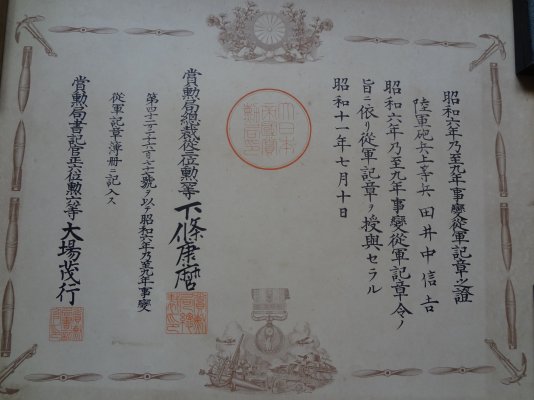 昭和六年乃至九年事變從軍記章之證
陸軍砲兵上等兵 田井中信吉
昭和六年乃至九年事變從軍記章令ノ
旨ニ依リ從軍記章ヲ授與セラル
昭和十一年七月十日
大日本
帝國賞
勲局印
賞勲局總裁從三位勲二等下條康麿
號ヲ以テ昭和六年乃至九年事變
從軍記章簿册ニ記入ス
賞勲局書記官正六位勲六等大場茂行